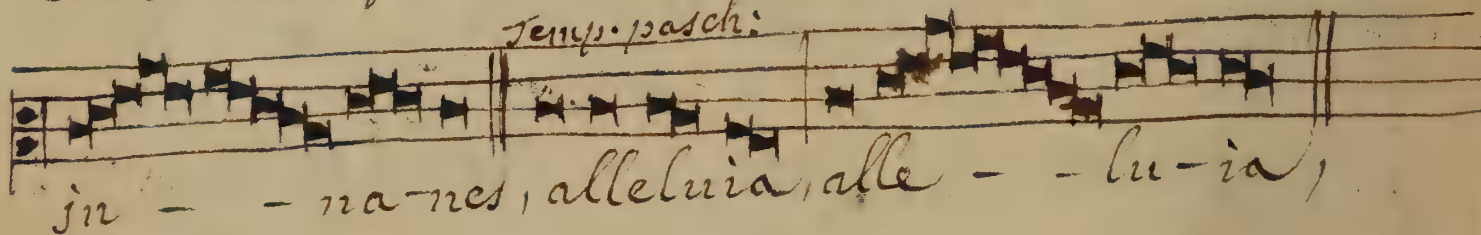 Temp. pasch:
in - - na-nes, alleluia, alle - - lu-ia,